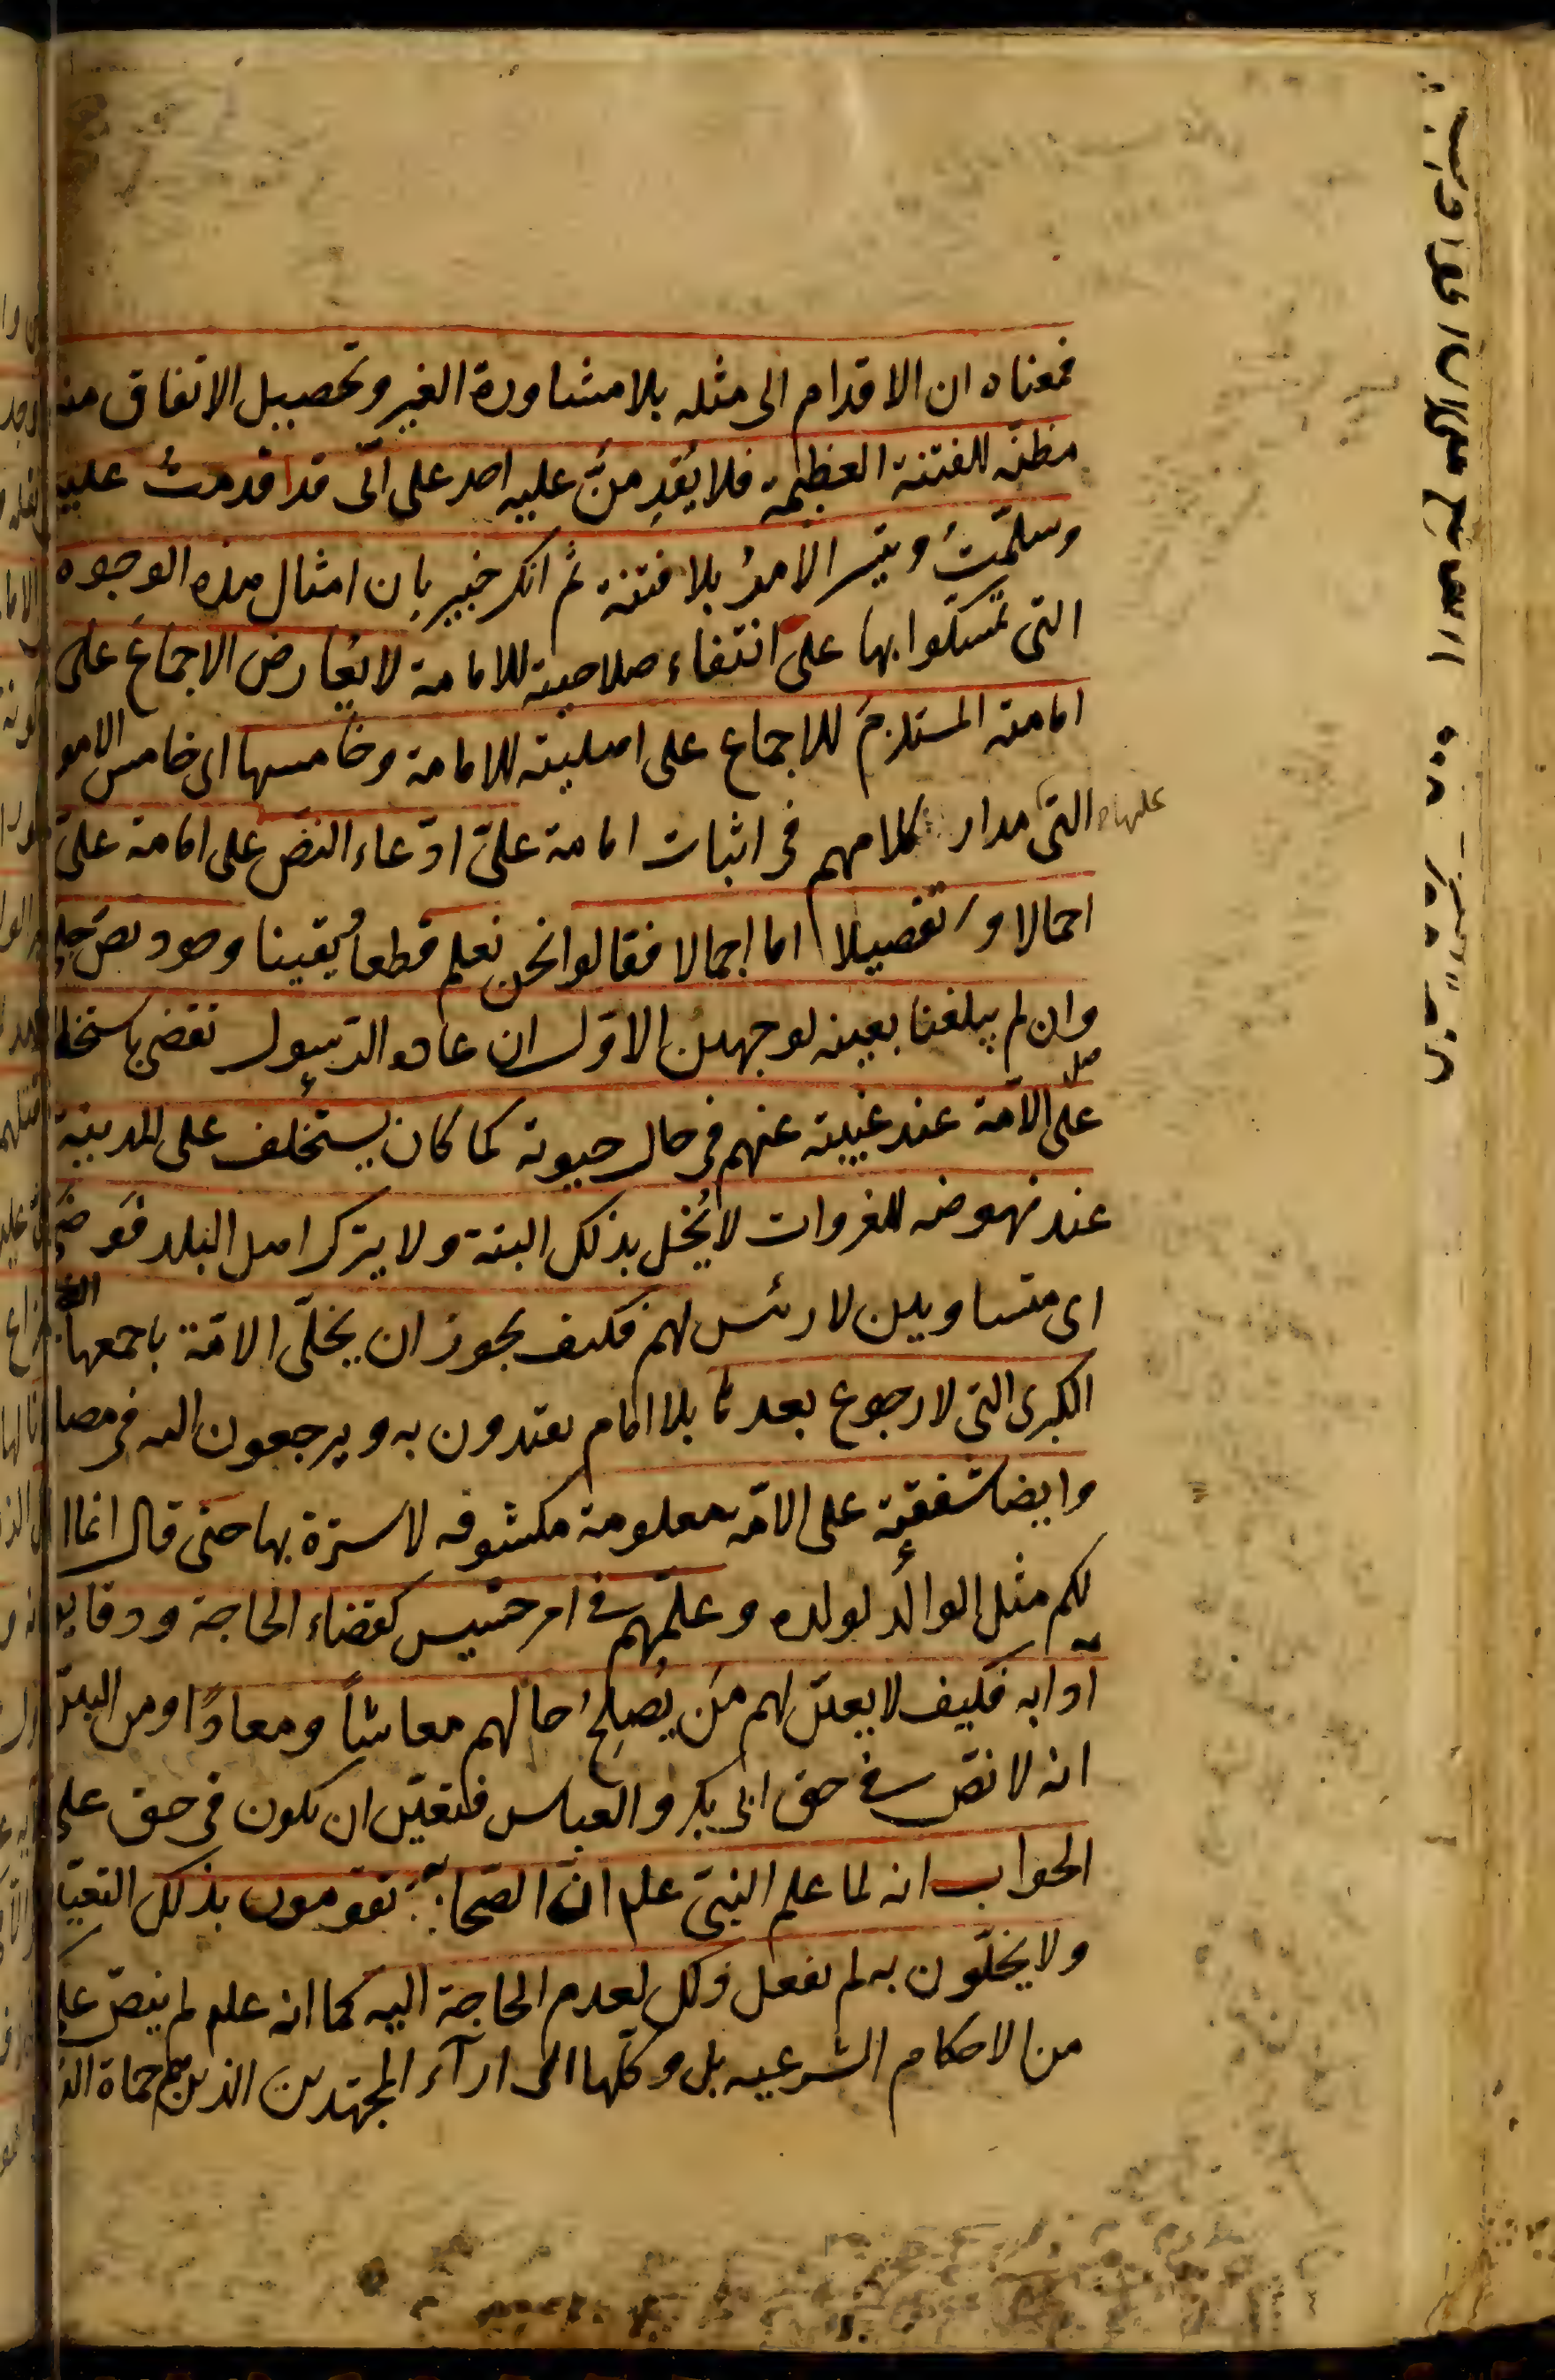 فمعناه ان الاقدام الى مثله بلا مشاورة الغير وتحصيل الاتفاق منه
مظنة للفتنة العظيمة فلا يُقدِمنَّ عليه احد على انّى قد اقدمتُ عليه
وسلّمتُ وتيسر الامرُ بلا فتنة ثم انك خبير بان امثال هذه الوجوه
التى تمسّكوا بها على انتفاء صلاحيته للامامة لا يُعارض الاجماعَ على
امامته المستلزمَ للاجماع على اهليته للامامة وخامسها اى خامس الامو
التى مدار كلامهم فى اثبات امامة علىّ ادّعاء النصّ على امامة علىّ
عليها
اجمالا وتفصيلا اما اجمالا فقالوا نحن نعلم قطعاً يقينا وجود نص جلى
وان لم يبلغنا بعينه لوجهين الاوّل ان عادة الرسول تقضى باستخلا
على الامّة عند غيبته عنهم فى حال حيوته كما كان يستخلف على المدينة
عند نهوضه للغزوات لا يُخل بذلك البتة ولا يترك اهل البلد فَوضَى
اى متساويين لا رئس لهم فكيف يجوز ان يخلّى الامّة باجمعها
الكبرى التى لا رجوع بعدها بلا امام يقتدون به ويرجعون اليه فى مصا
وايضا شفقته على الامّة معلومة مكشوفه لا سترة بها حتى قال انما ا
لكم مثل الوالد لولده وعلّمهم فى امر خسيس كقضاء الحاجة ودقايق
آدابه فكيف لا يعيّن لهم مَن يُصلِحُ حالهم معاشاً ومعادًا ومن البيّن
انه لا نصّ فى حق ابى بكر والعباس فتعيّن ان يكون فى حق على
الجواب انه لما علم النبىّ علم انّ الصحابة تقومون بذلك التعيّن
ولا يخلّون به لم يفعل ذلك لعدم الحاجة اليه كما انه علم لم ينصّ على
من الاحكام الشرعيه بل وكّلها الى ارآء المجتهدين الذين هم حماة الد